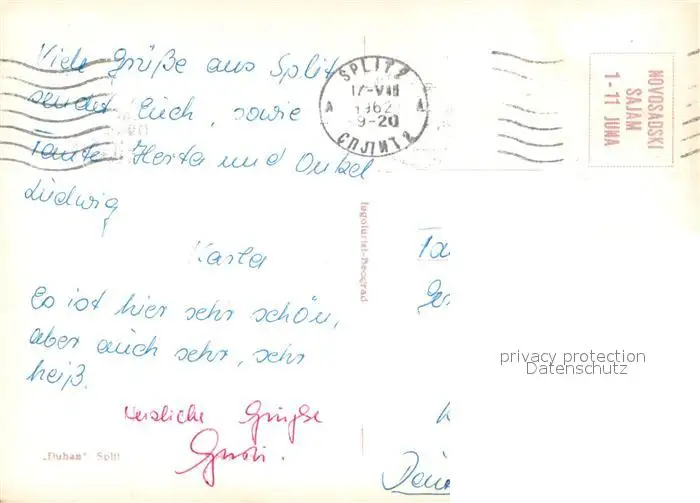 Viele Grüße aus Split
sendet Euch, sowie
Tante Herta und Onkel
Ludwig
Karla
Es ist hier sehr schön,
aber auch sehr, sehr
heiß.
Herzliche Grüße
„Duhan" Split
Jugoturist-Beograd
SPLIT 2
17-VIII
1962
9-20
A A
СПЛИТ 2
NOVOSADSKI
SAJAM
1-11 JUNA
privacy protection
Datenschutz